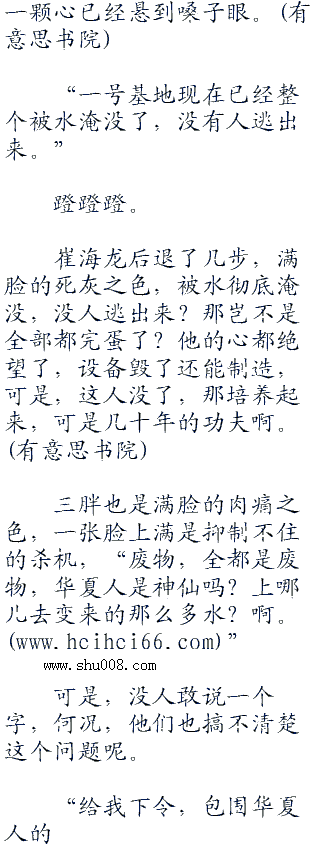 一颗心已经悬到嗓子眼。(有
意思书院)
“一号基地现在已经整
个被水淹没了，没有人逃出
来。”
蹬蹬蹬。
崔海龙后退了几步，满
脸的死灰之色，被水彻底淹
没，没人逃出来？那岂不是
全部都完蛋了？他的心都绝
望了，设备毁了还能制造，
可是，这人没了，那培养起
来，可是几十年的功夫啊。
(有意思书院)
三胖也是满脸的肉痛之
色，一张脸上满是抑制不住
的杀机，“废物，全都是废
物，华夏人是神仙吗？上哪
儿去变来的那么多水？啊。
(www.hcihci66.com)”
www.shu008.com
可是，没人敢说一个
字，何况，他们也搞不清楚
这个问题呢。
“给我下令，包围华夏
人的